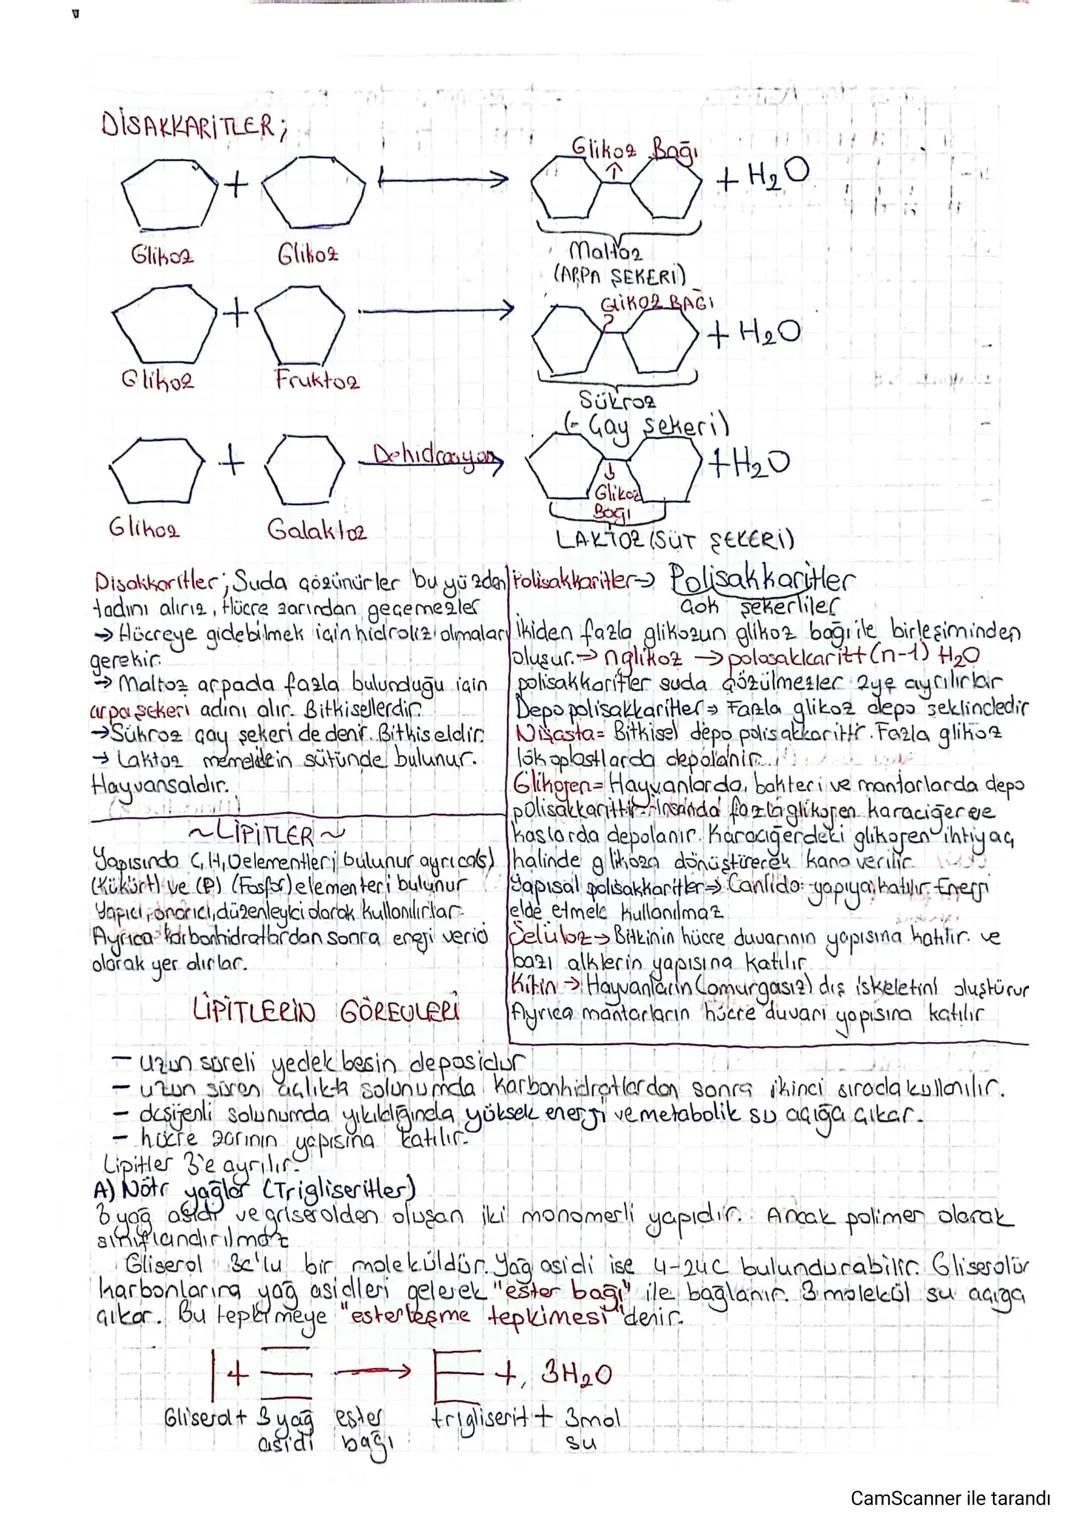 DİSAKKARİTLER;
Glikoz Bağı
+ → + H2O
Glikoz Glikoz Maltoz
(ARPA ŞEKERİ)
GLİKOZ BAĞI
+ → + H2O
Glikoz Fruktoz
Sükroz
(- Çay şekeri)
+ Dehidrasyon → + H2O
Glikoz
Bağı
Glikoz Galaktoz
LAKTOZ (SÜT ŞEKERİ)
Disakkaritler; Suda çözünürler bu yüzden
tadını alırız, Hücre zarından geçemezler
→ Hücreye gidebilmek için hidroliz olmaları
gerekir.
→ Maltoz arpada fazla bulunduğu için
arpa şekeri adını alır. Bitkisellerdir.
→ Sükroz çay şekeri de denir. Bitkiseldir.
→ Laktoz memelilein sütünde bulunur.
Hayvansaldır.
Polisakkaritler → Polisakkaritler
çok şekerliler
İkiden fazla glikozun glikoz bağı ile birleşiminden
oluşur. → n glikoz → polosakkaritt (n-1) H2O
polisakkaritler suda çözülmezler 2ye ayrılırlar
Depo polisakkaritler → Fazla glikoz depo şeklindedir
Nişasta = Bitkisel depo polisakkarittir. Fazla glikoz
lökoplastlarda depolanır.
Glikojen = Hayvanlarda, bakteri ve mantarlarda depo
polisakkarittir. İnsanda fazla glikojen karaciğer ve
kaslarda depolanır. Karaciğerdeki glikojen ihtiyaç
halinde glikoza dönüştürerek kana verilir
Yapısal polisakkaritler → Canlıda yapıya katılır. Enerji
elde etmek kullanılmaz
Selüloz → Bitkinin hücre duvarının yapısına katılır. ve
bazı alklerin yapısına katılır
Kitin → Hayvanların (omurgasız) dış iskeletini oluşturur
Ayrıca mantarların hücre duvarı yapısına katılır
~LİPİTLER~
Yapısında C, H, O elementleri bulunur ayrıca (S)
(Kükürt) ve (P) (Fosfor) elementeri bulunur
Yapıcı, onarıcı, düzenleyici olarak kullanılırlar.
Ayrıca karbonhidratlardan sonra eneji verici
olarak yer alırlar.
LİPİTLERİN GÖREVLERİ
- uzun süreli yedek besin deposidur
- uzun süren açlıkta solunumda karbonhidratlardan sonra ikinci sırada kullanılır.
- oksijenli solunumda yıkıldığında yüksek enerji ve metabolik su açığa çıkar.
- hücre zarının yapısına katılır.
Lipitler 3'e ayrılır.
A) Nötr yağlar (Trigliseritler)
3 yağ asidi ve griserolden oluşan iki monomerli yapıdır. Ancak polimer olarak
sınıflandırılmaz
Gliserol 3c'lu bir moleküldür. Yağ asidi ise 4-24C bulundurabilir. Gliserolür
karbonlarına yağ asidleri gelerek "ester bağı" ile bağlanır. 3 molekül su açığa
çıkar. Bu tepkimeye "esterleşme tepkimesi" denir.
+ → +, 3H2O
Gliserol + 3 yağ ester trigliserit + 3mol
asidi bağı su
CamScanner ile tarandı